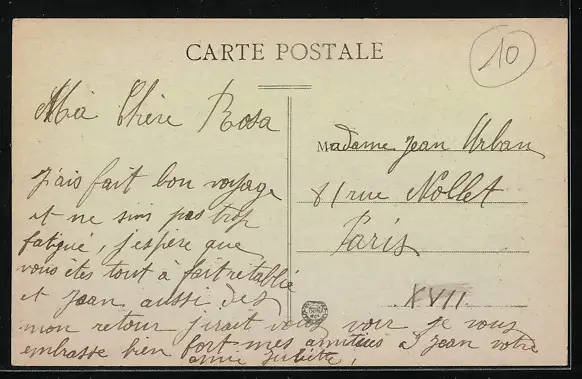 CARTE POSTALE
10
Ma Chère Rosa
J'ais fait bon voyage
et ne suis pas trop
fatigué, j'espère que
vous êtes tout à fait rétablie
et Jean aussi dès
mon retour j'irait vous voir je vous
embrasse bien fort mes amitiés à Jean votre
amie Juliette.
Madame Jean Urban
81 rue Nollet
Paris
XVII